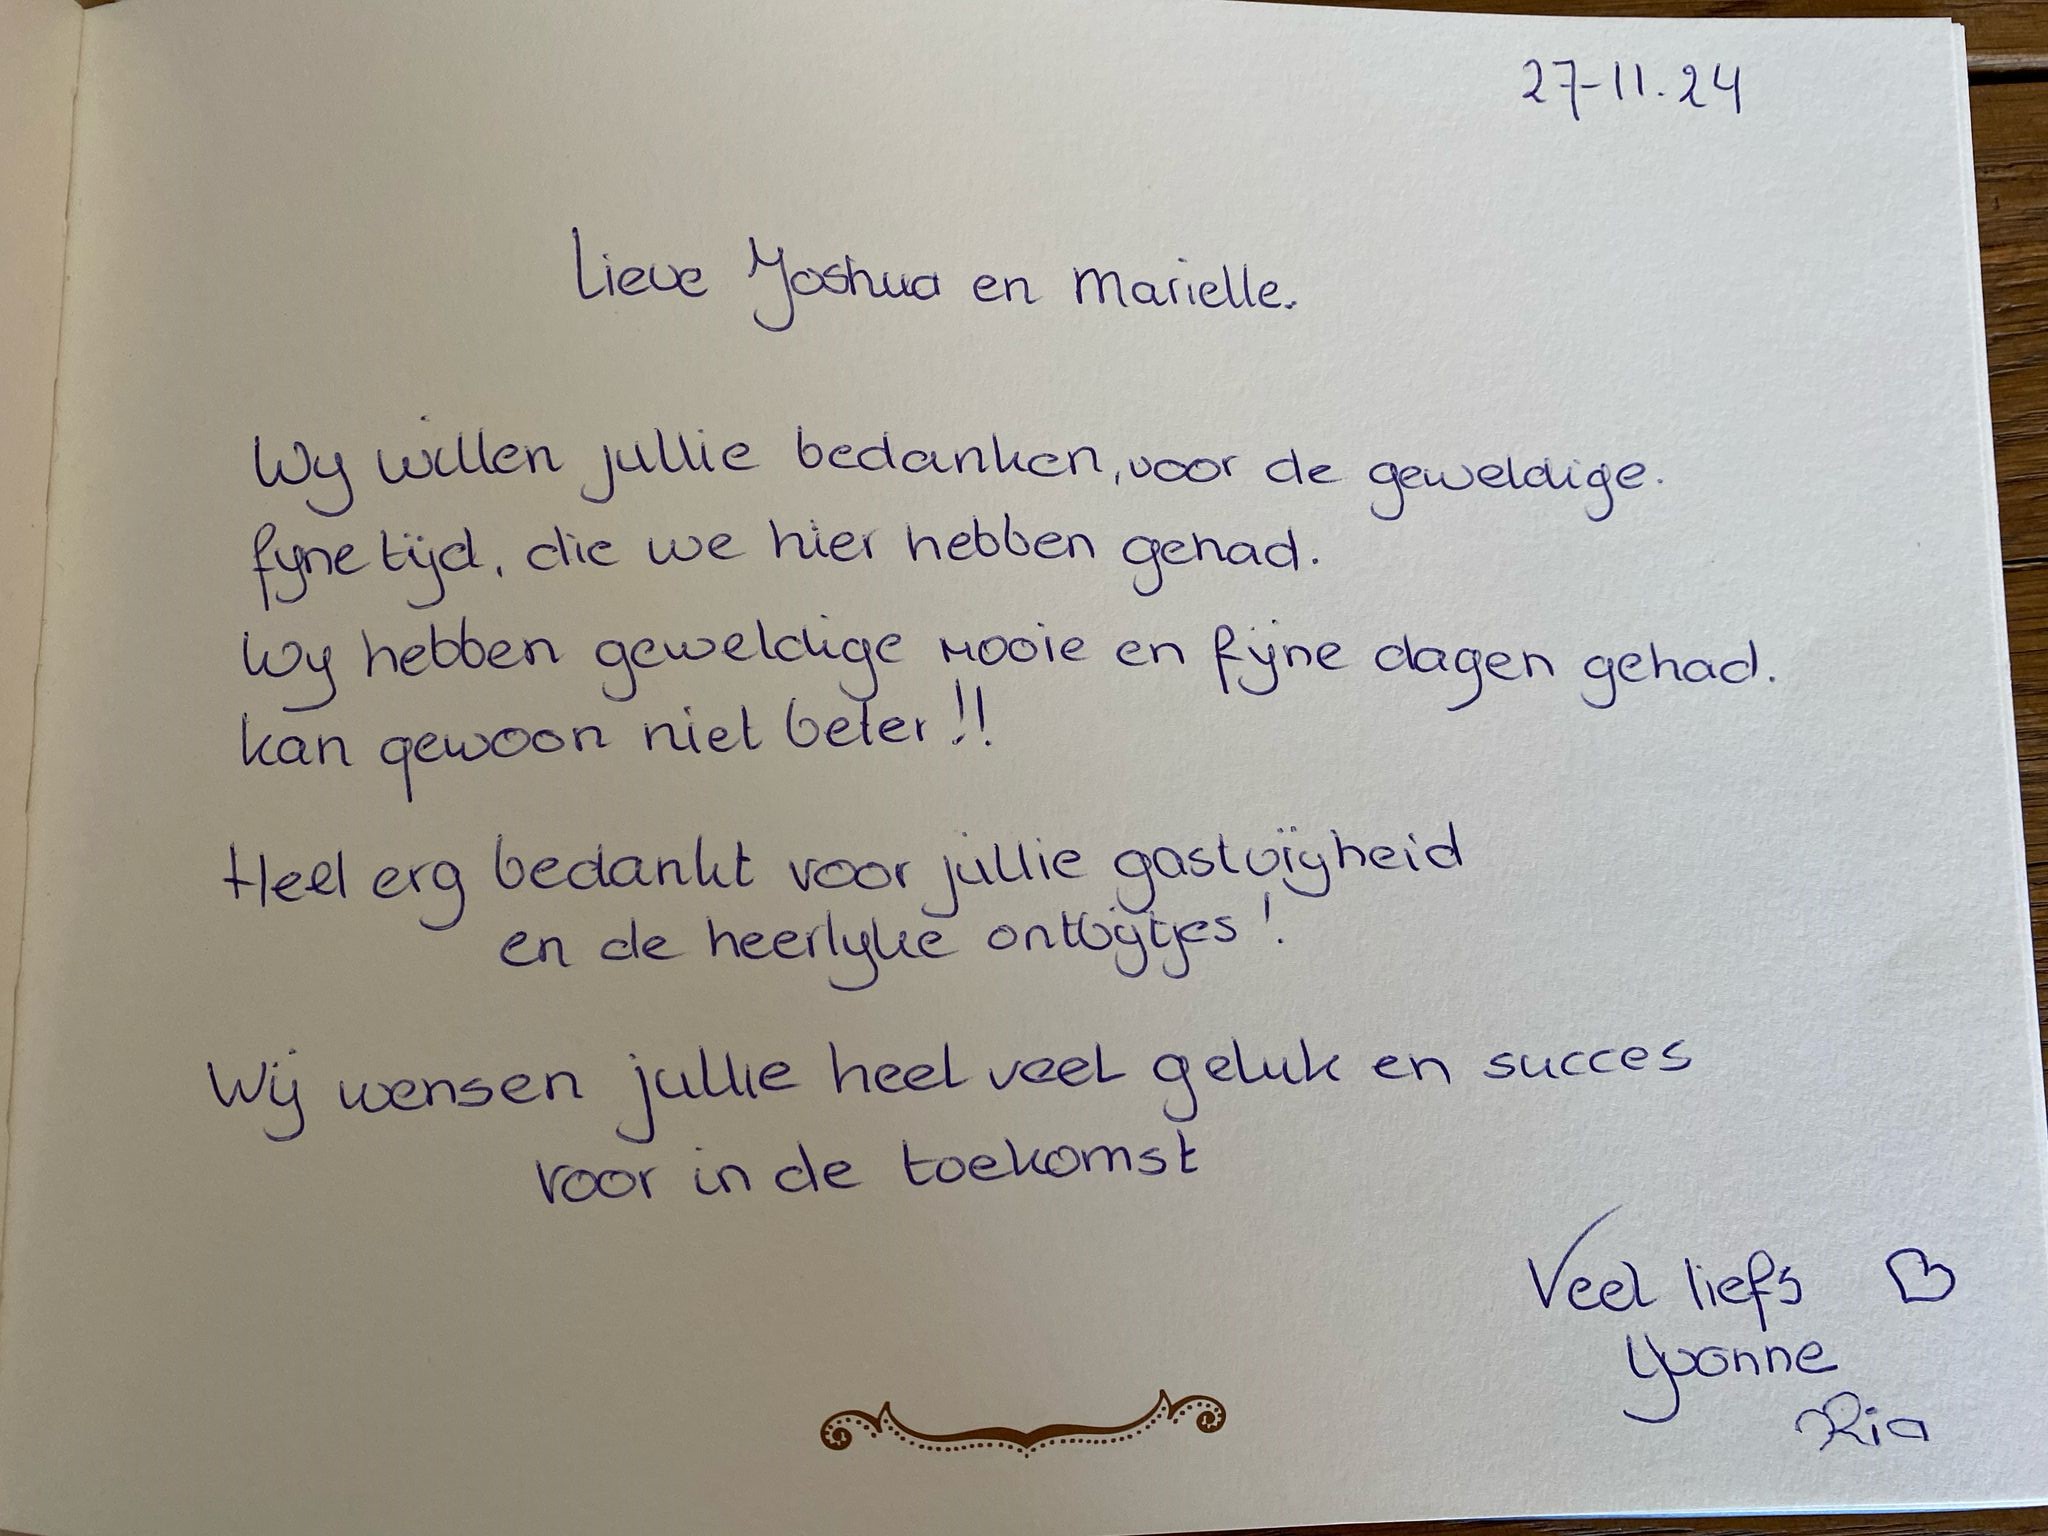 27-11.24
Lieve Joshua en Marielle.
Wij willen jullie bedanken, voor de geweldige.
fijne tijd, die we hier hebben gehad.
Wij hebben geweldige mooie en fijne dagen gehad.
kan gewoon niet beter!!
Heel erg bedankt voor jullie gastvijheid
en de heerlijke ontbijtjes!
Wij wensen jullie heel veel geluk en succes
voor in de toekomst
Veel liefs ♡
Yvonne
Ria